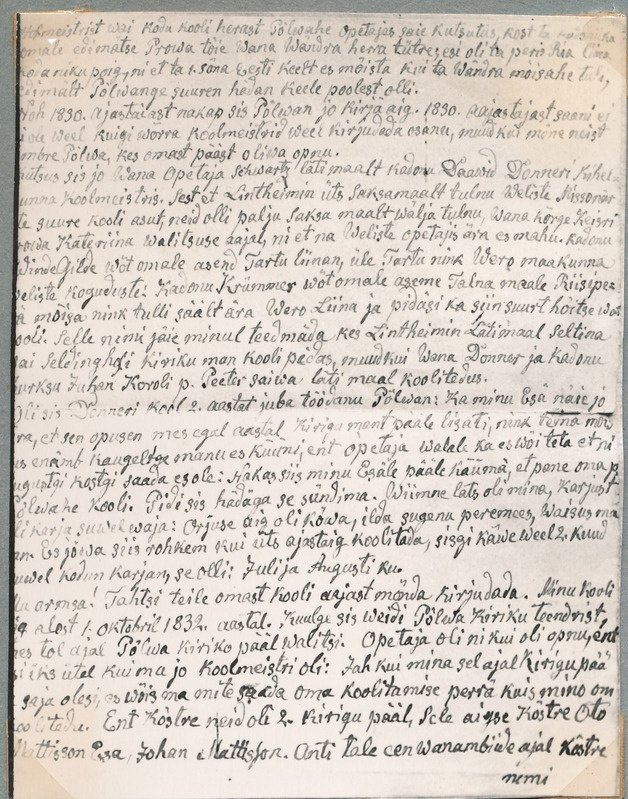 wai Kodu kooli herast Pölwahe opetajas saie Kutsutus, kost ta
omale edimatse Prowa töie Wana Wandra herra tütre, esi oli ta peris hia
niku poig, ni et ta 1. söna Eesti Keelt es möista kui ta Wändra möisahe tulli,
edimalt Pölwange suuren hädan keele poolest olli.
1830. ajastajast nakap sis Pölwan jo Kirja aig. 1830. aajastajast saani ei
ole weel kuigi worra Koolmeistrid weel kirjudada osanu, muud kui möne neist
ümbre Pölwa, kes omast pääst oliwa opnu.
sis jo Wana Opetaja Schwartz läti maalt kadonu Daawid Donneri
Koolmeistris. Sest et Lintheimin üts Saksamaalt tulnu Weliste Missonär
suure kooli asut, neid olli palju Saksa maalt wälja tulnu, Wana körge Keisri
Katerina walitsuse aajal, ni et na Weliste opetajis ära es mahu. Kadonu
wöt omale asend Tartu liinan, üle Tartu nink Wero maakunna
weliste kogudusti: Kadonu Krümmer wöt omale aseme Talna maale
möisa nink tulli säält ära Wero Liina ja pidäsi ka siin suurt
kooli. Selle nimi jäie minul teedmäda kes Lintheimin Lätimaal Seltina
Kiriku man kooli pedas, muud kui Wana Donner ja kadonu
Juhan Koroli p. Peeter saiwa läti maal koolitedus.
Oli sis Donneri Kool 2. aastat juba töödanu Pölwan: Ka minu Esä näie jo
ära, et sen opusen mes egal aastal Kirigu mant pääle lisati, nink
enämb kaugelga mänu es küüni, ent opetaja walale ka es woi teta et ni
kostgi saada es ole: Hakas siis minu Esäle pääle käümä, et pane oma
Pölwahe Kooli. Pidi sis hädäga se sündima. Wiimne lats oli mina, Karjust
karja suwel waja: Orjuse aig oli köwa, ilda sugenu peremees, Waisus ma
Es jöwa siis rohkem kui üts ajastaig Koolitada, sisgi käwe weel 2. kuud
suwel kodun karjan, se olli: Julij ja Augusti ku.
armsa! Tahtsi teile omast kooli aajast mönda kirjudada. Minu kooli
alost 1. Oktobril 1832. aastal. Kuulge sis weidi Pölwa Kiriku teendrist,
mes tol ajal Pölwa kiriko pääl walitsi. Opetaja oli ni kui oli opnu, ent
ütel kui ma jo Koolmeistri oli: Jah kui mina sel ajal Kirigu pää
saja olesi, es wöis ma mite saada oma koolitamise perrä kuis mino om
koolitedu. Ent Köstre neid oli 2. kirigu pääl, Selle aigse Köstre Oto
Mattisson Essa, Johan Mattisson. Anti tale een wanambide ajal Köstre
nimi